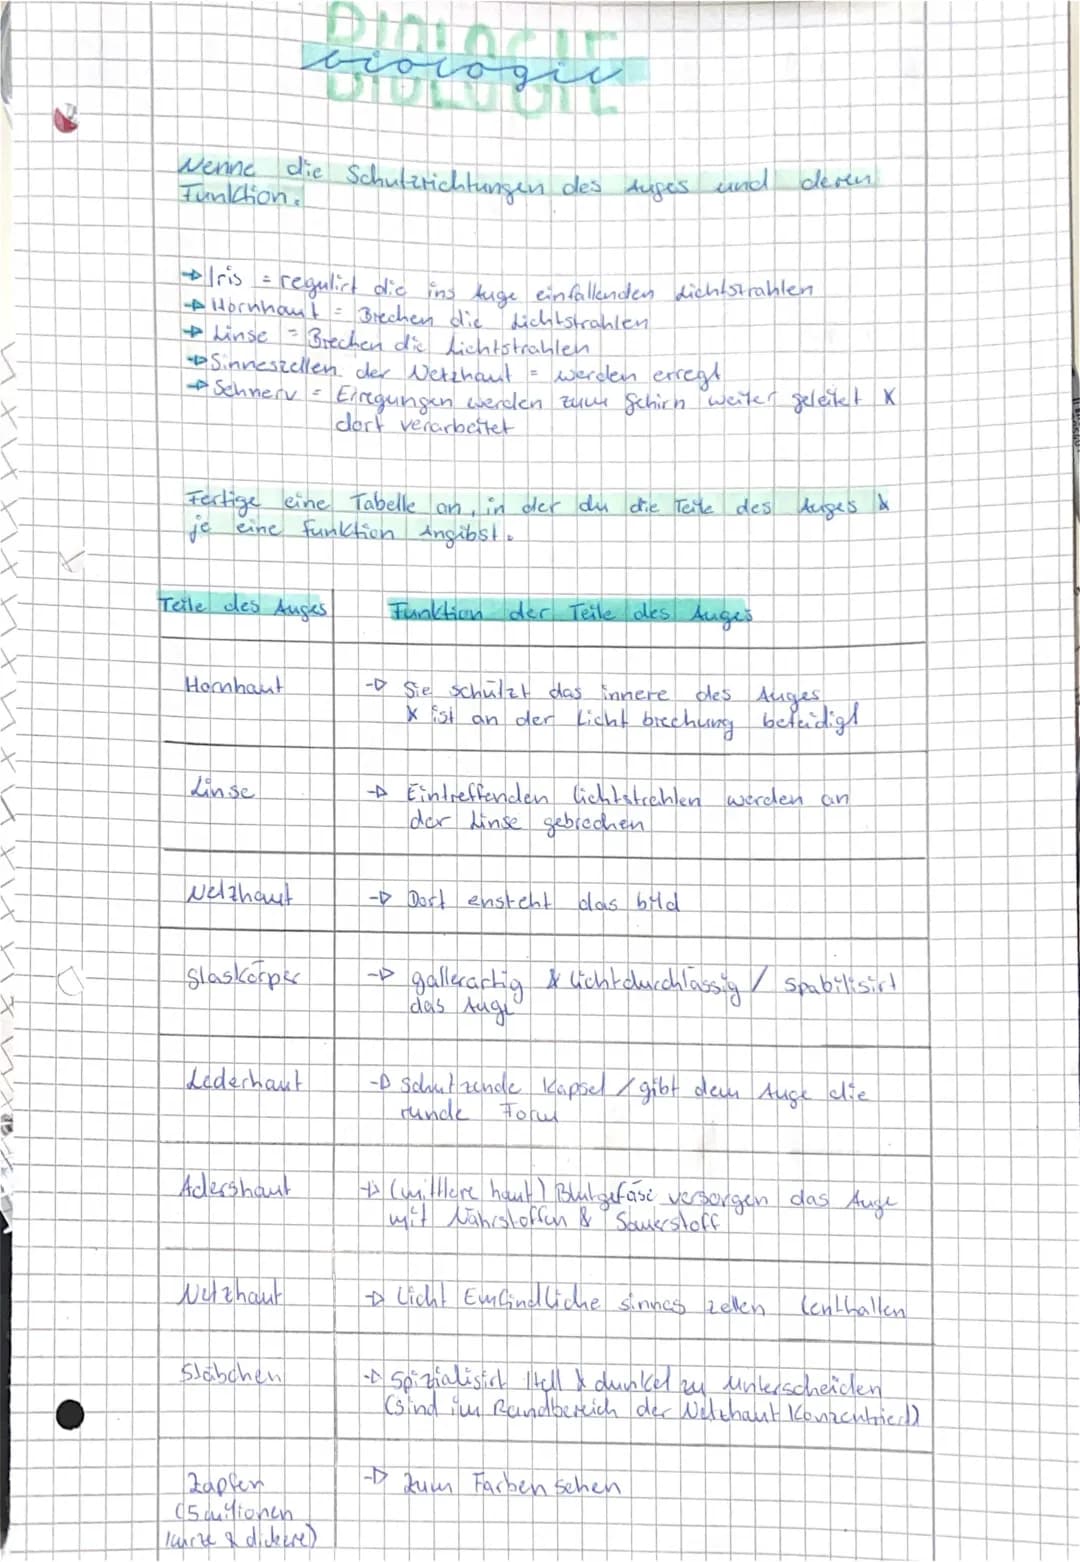 BIOLOGIE
biologie
BIOLOGIE
Nenne die Schutzrichtungen des Auges und deren
Funktion.
→ Iris = regulirt die ins Auge einfallenden Lichtstrahlen
→ Hornhaut = Brechen die Lichtstrahlen
→ Linse = Brechen die Lichtstrahlen
→ Sinneszellen der Netzhaut = werden erregt
→ Sehnerv = Erregungen werden zum Gehirn weiter geleitet &
dort verarbeitet
Fertige eine Tabelle an, in der du die Teile des Auges &
je eine Funktion Angibst.
Teile des Auges Funktion der Teile des Auges
Hornhaut → Sie schützt das innere des Auges
& ist an der Licht brechung beteidigt
Linse → Eintreffenden lichtstrehlen werden an
der Linse gebrechen
Netzhaut → Dort ensteht das bild
Glaskörper → gallerartig & lichtdurchlässig / spabilisirt
das Auge
Lederhaut → schutzende Kapsel / gibt dem Auge die
runde Form
Adershaut → (mittlere haut) Blutgefäse versorgen das Auge
mit Nährstoffen & Sauerstoff
Netzhaut → Licht Emfindliche sinnes zellen (enthallen
Stäbchen → Spizialisirt Hell & dunkel zu Unterscheiden
(sind im Randbereich der Netzhaut Konzentriert)
Zapfen → Zum Farben sehen
(5 millionen
kurze & dickere)